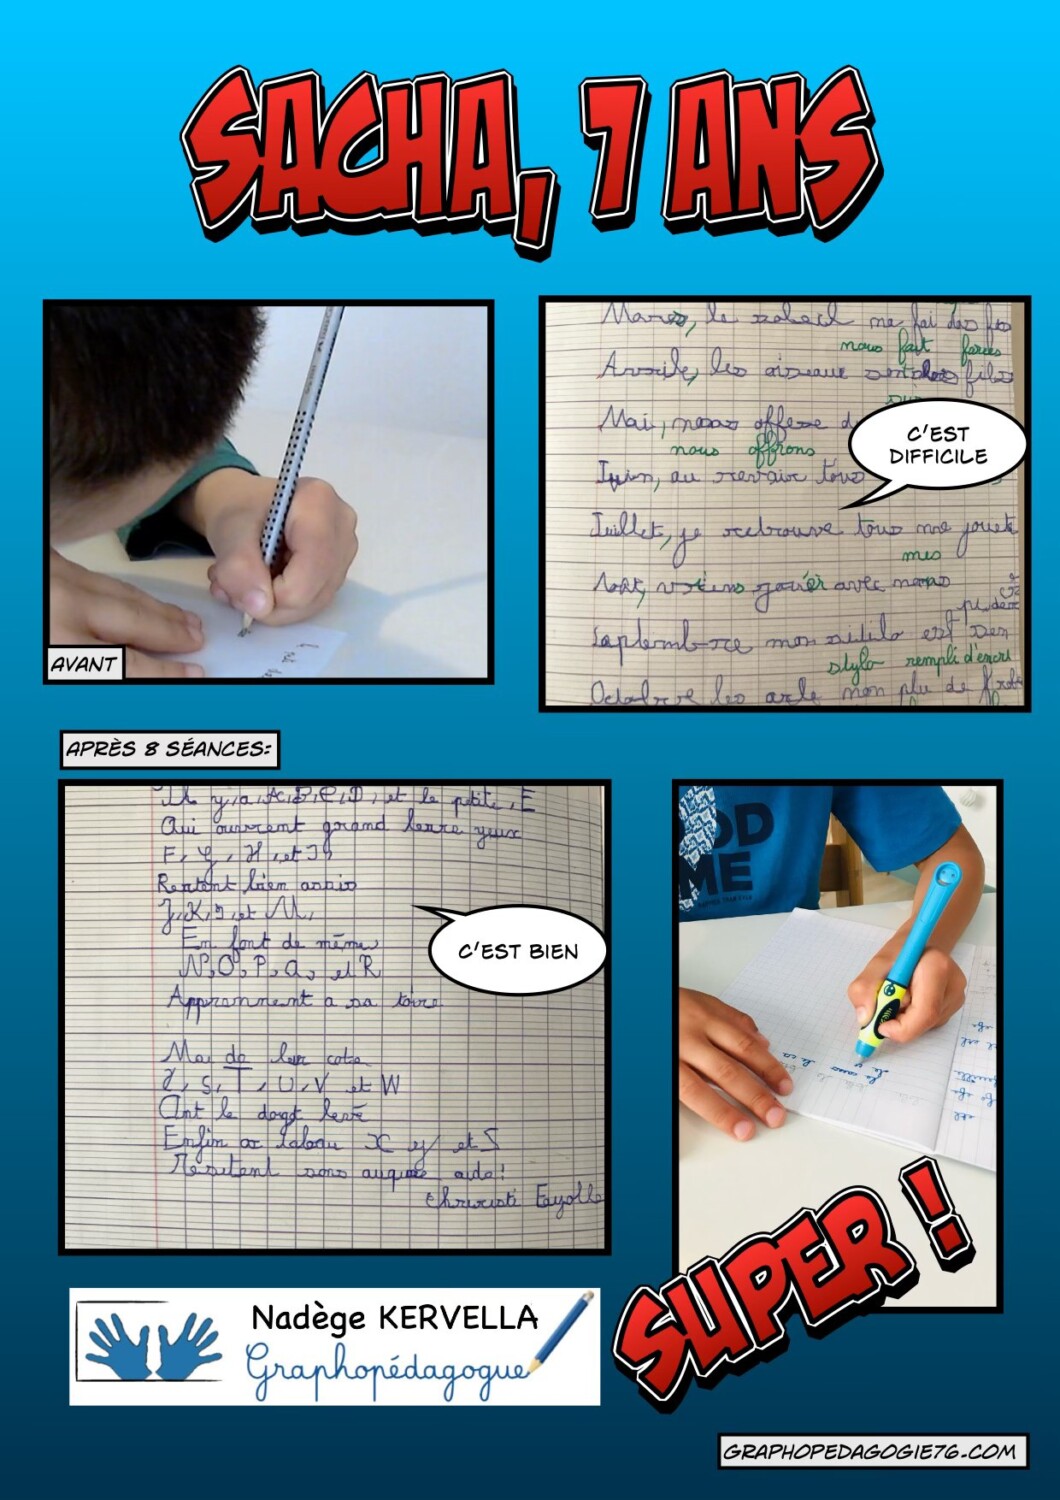 SACHA, 7 ANS
AVANT
Mars, le soleil me fai des fo
nous fait forces
Avrile, les oiseaue sont des files
sur
Mai, nous offese d
nous offrons
C'EST
DIFFICILE
Juin, au revoir tous
Juillet, je retrouve tous me jouets
mes
Aout, viens jouér avec nous
Septembre mon stilo est
stylo rempli d'encre
Octobre les arbre non plu de
APRÈS 8 SÉANCES:
Il y a A, B, C, D, et le petite, E
Qui ouvrent grand leure yeux
F, G, H, et I,
Restent bien assis
J, K, L, et M,
En font de même
N, O, P, Q, et R
Apprennent a sa taire
C'EST BIEN
Mai de leur coté
S, T, U, V et W
Ont le doigt levé
Enfin au tabeau X Y et Z
Résitent sans aucune aide!
OD
ME
SUPER !
Nadège KERVELLA
Graphopédagogue
GRAPHOPEDAGOGIE76.COM